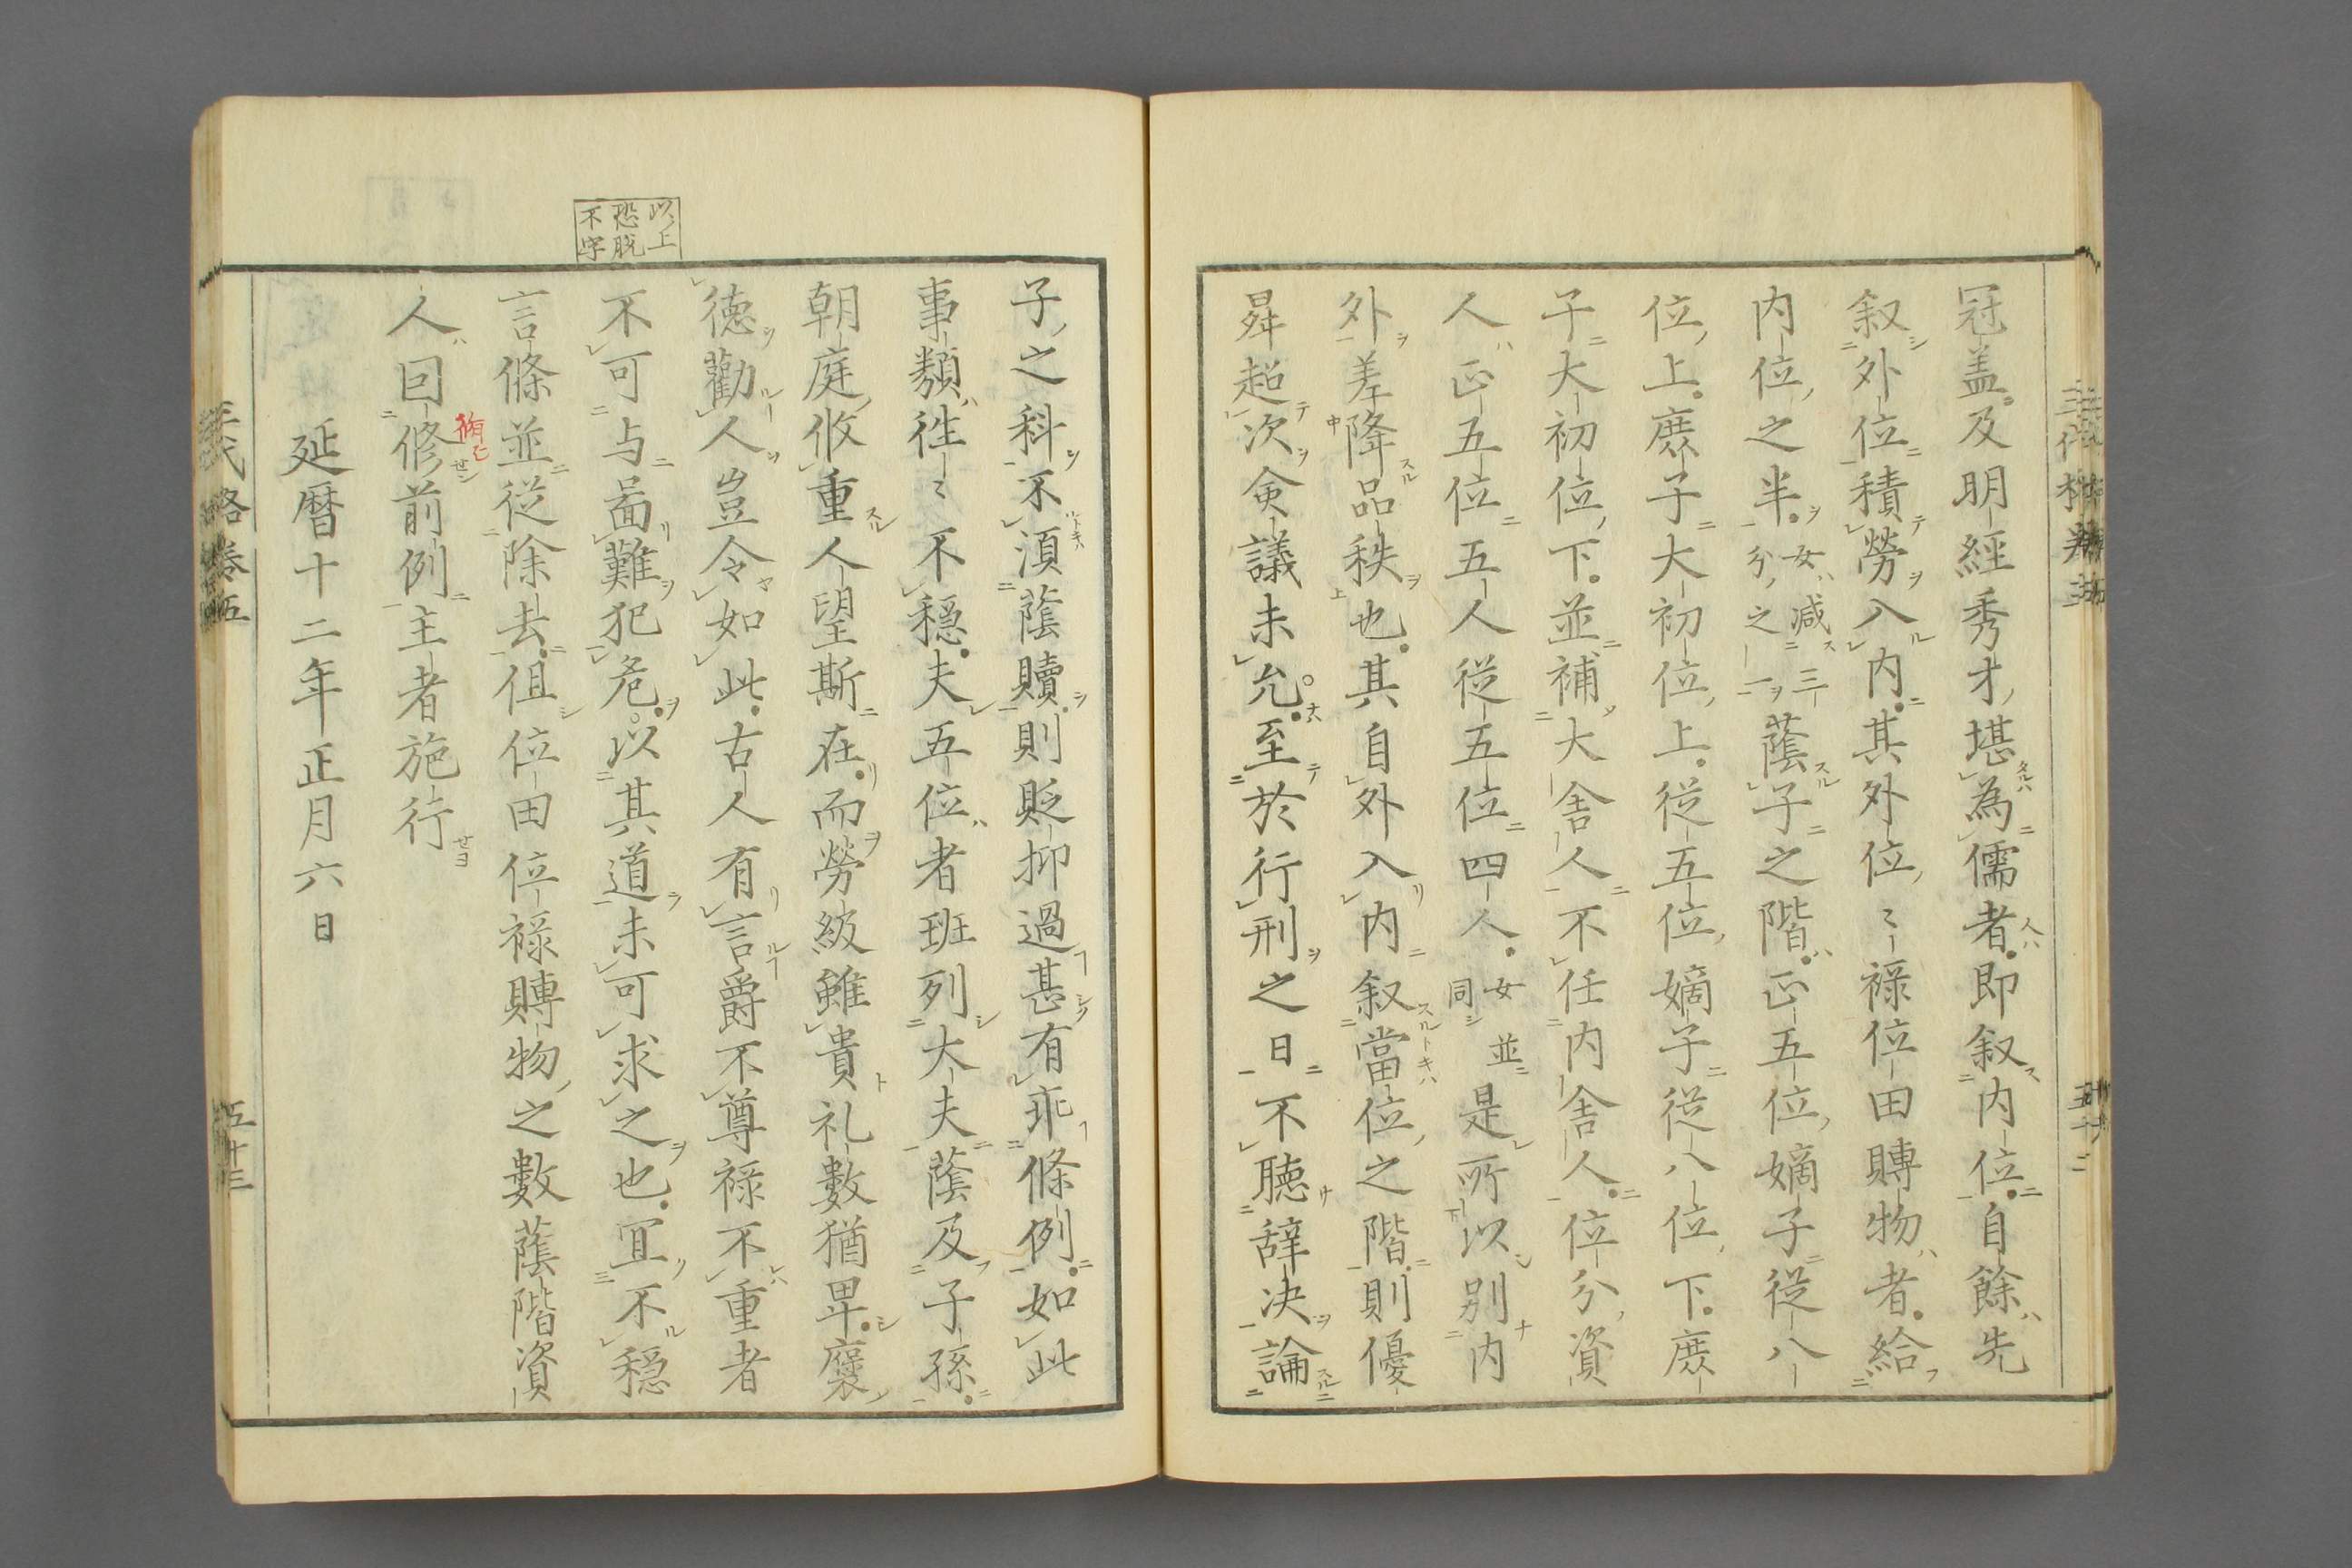 冠蓋及明經秀才堪為儒者即叙内位自餘先
叙外位積勞入内其外位〻禄位田賻物者給
内位之半女減三分之一蔭子之階正五位嫡子從八
位上庶子大初位上從五位嫡子從八位下庶
子大初位下並補大舎人不任内舎人位分資
人正五位五人從五位四人女並同是所以别内
外差降品秩也其自外入内叙當位之階則優
昇超次僉議未允至於行刑之日不聴辞决論
子之科不湏蔭贖則貶抑過甚有乖條例如此
事類徃〻不穏夫五位者班列大夫蔭及子孫
朝庭攸重人望斯在而勞級雖貴礼數猶畢褒
徳勸人豈令如此古人有言爵不尊禄不重者
不可与啚難犯危以其道未可求之也冝不穏
言條並從除去但位田位禄賻物之數蔭階資
人囙修前例主者施行
延暦十二年正月六日
以上
恐脱
不字
循乍